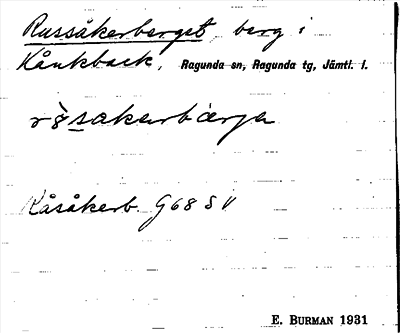 Russåkerberget, berg i
Kånkback, Ragunda sn, Ragunda tg, Jämtl. l.
Kåsåkerb. G68 SV
E. BURMAN 1931